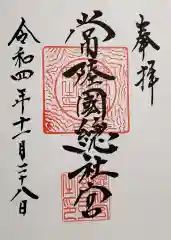 奉拝
常陸國總社宮
令和四年十一月二十八日